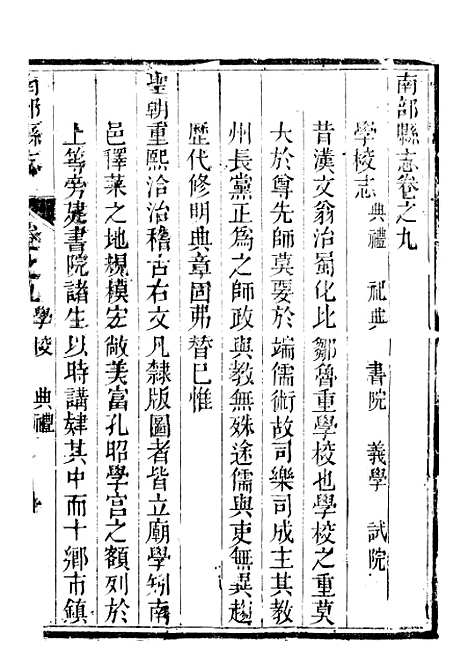 南部縣志卷之九
學校志 典禮 祀典 書院 義學 試院
昔漢文翁治蜀化比鄒魯重學校也學校之重莫
大於尊先師莫要於端儒術故司樂司成主其教
州長黨正為之師政與教無殊途儒與吏無異趨
歷代修明典章固弗替已惟
聖朝重熙洽治稽古右文凡隸版圖者皆立廟學矧南
邑釋菜之地規模宏敞美富孔昭學宮之額列於
上等旁建書院諸生以時講肄其中而十鄉市鎮
南部縣志 卷之九 學校 典禮